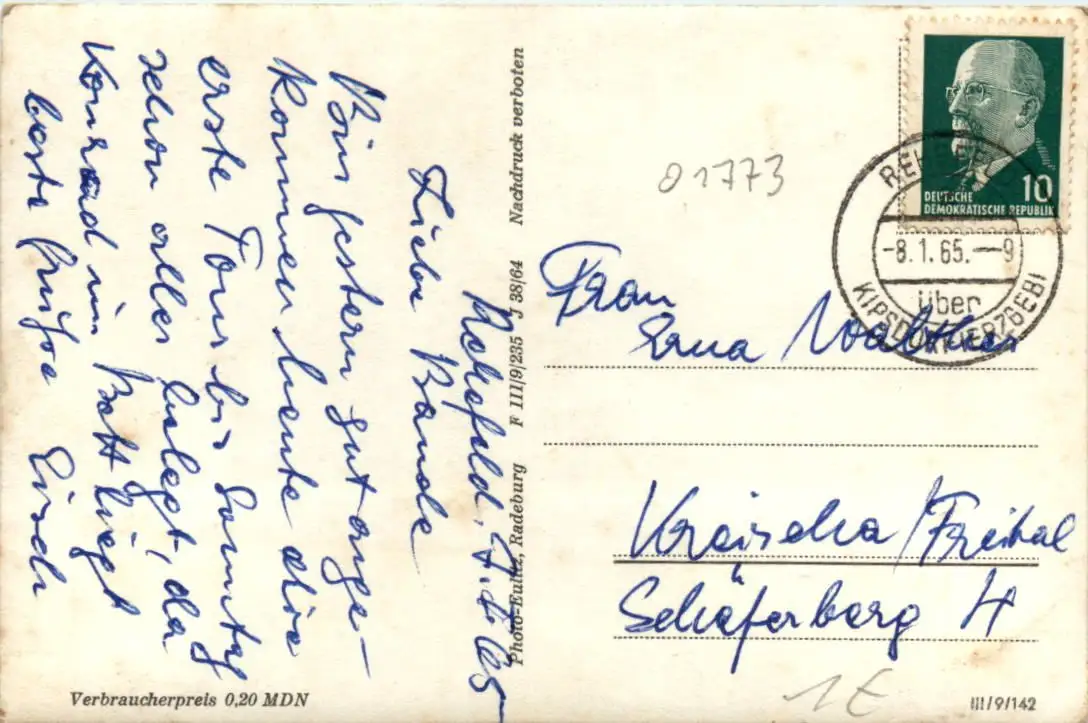 Rehefeld, 7.1.65
Liebe Bande
Bin gestern gut ange-
kommen heute die
erste Tour bis Sonntag
schon alles belegt, da
Konrad im Bett liegt
beste Grüße
Nachdruck verboten
F III/9/235 J 38/64
Photo-Eulitz, Radeburg
Verbraucherpreis 0,20 MDN
01773
DEUTSCHE
DEMOKRATISCHE REPUBLIK
10
-8.1.65.--9
über
KIPSDORF (ERZGEB)
Frau
Erna Walther
Kreischa/Freital
Schäferberg 4
1€
III/9/142